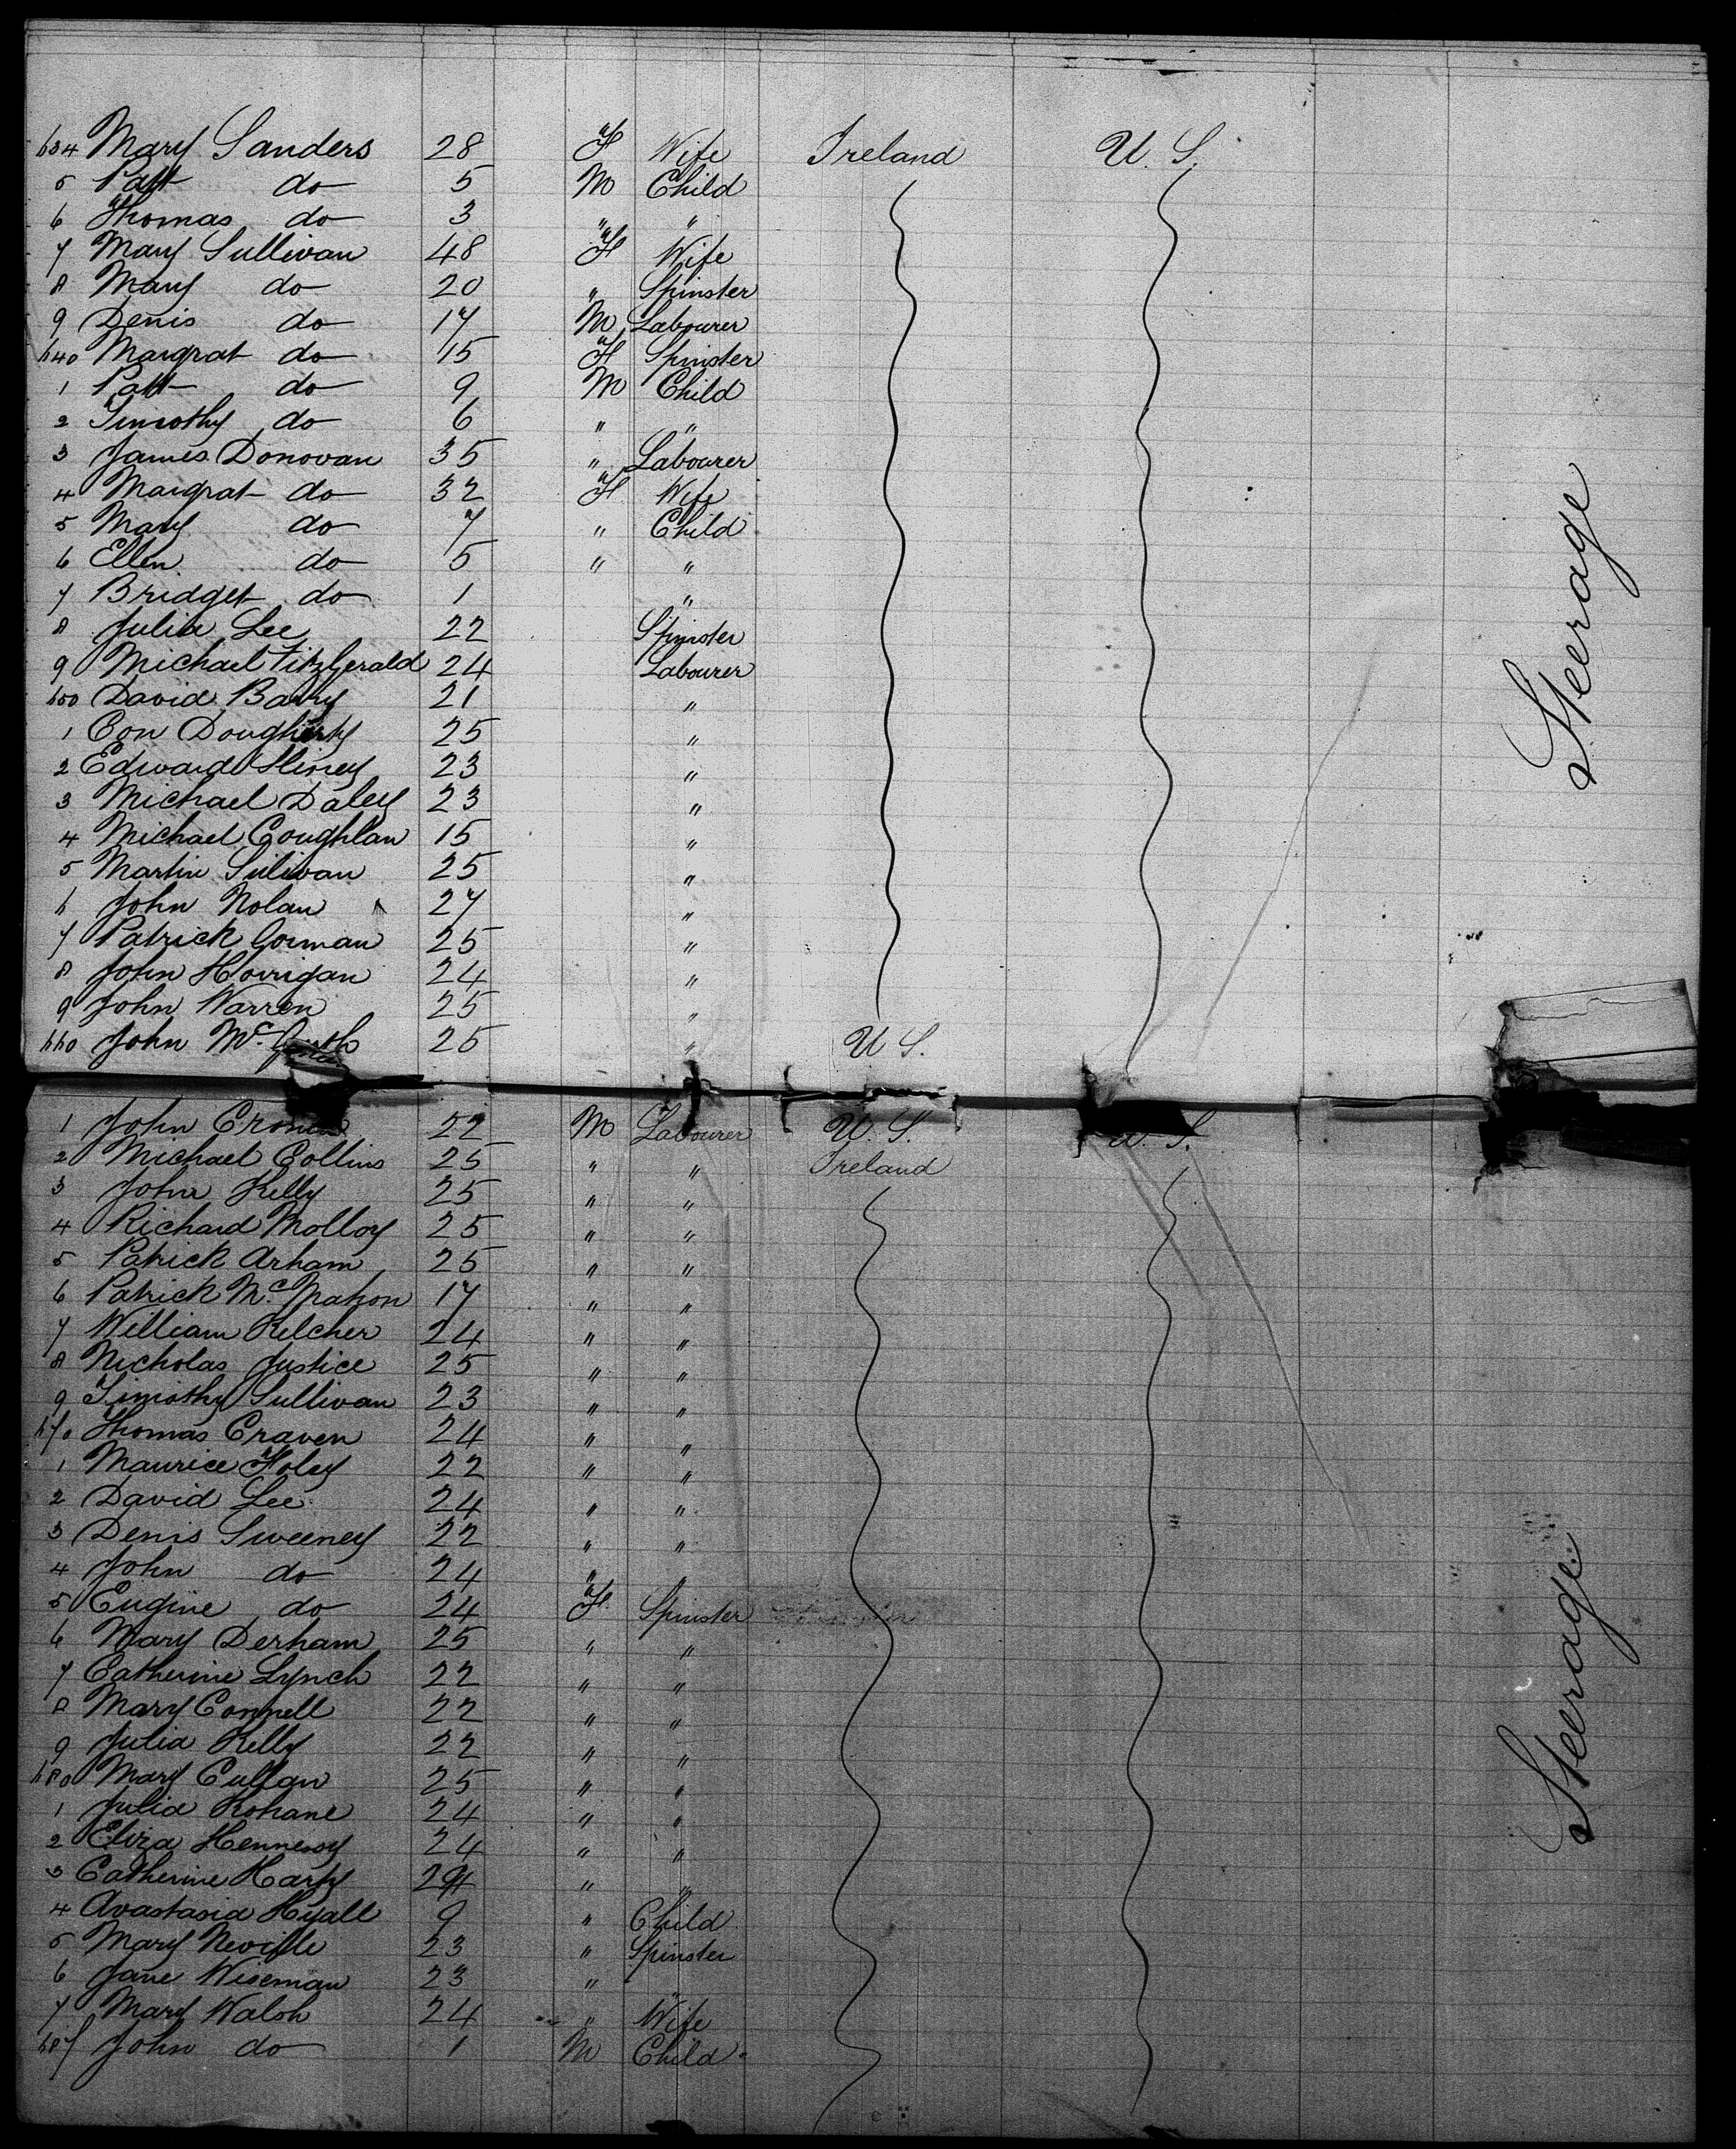 634 Mary Sanders 28 F Wife Ireland U. S.
5 Patt do 5 M Child
6 Thomas do 3 " "
7 Mary Sullivan 48 F Wife
8 Mary do 20 " Spinster
9 Denis do 17 M Labourer
640 Margrat do 15 F Spinster
1 Patt do 9 M Child
2 Timothy do 6 " "
3 James Donovan 35 " Labourer
4 Margrat do 32 F Wife
5 Mary do 7 " Child
6 Ellen do 5 " "
7 Bridget do 1 "
8 Julia Lee 22 Spinster
9 Michael FitzGerald 24 Labourer
650 David Barry 21 "
1 Con Dougherty 25 "
2 Edward 23 "
3 Michael Daley 23 "
4 Michael Coughlan 15 "
5 Martin Sulivan 25 "
6 John Nolan 27 "
7 Patrick Gorman 25 "
8 John Horrigan 24 "
9 John Warren 25 "
660 John Mc 25 " U S.
Steerage
1 John 22 M Labourer U. S. U. S.
2 Michael Collins 25 " " Ireland
3 John Kelly 25 " "
4 Richard Molloy 25 " "
5 Patrick Arham 25 " "
6 Patrick Mc Mahon 17 " "
7 William Kelcher 24 " "
8 Nicholas Justice 25 " "
9 Timothy Sullivan 23 " "
670 Thomas Craven 24 " "
1 Maurice Foley 22 " "
2 David Lee 24 " "
3 Denis Sweeney 22 " "
4 John do 24 " "
5 Eugine do 24 F Spinster
6 Mary Derham 25 " "
7 Catherine Lynch 22 " "
8 Mary Connell 22 " "
9 Julia Kelly 22 " "
680 Mary Cullan 25 " "
1 Julia Kohane 24 " "
2 Eliza Hennessy 24 " "
3 Catherine Harty 24 " "
4 Anastasia Hyall 9 " Child
5 Mary Neville 23 " Spinster
6 Jane Wiseman 23 " "
7 Mary Walsh 24 " Wife
687 John do 1 M Child
Steerage